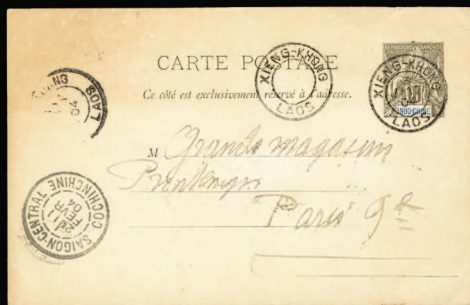 CARTE POSTALE
Ce côté est exclusivement réservé à l'adresse.
XIENG-KHONG
LAOS
XIENG-KHONG
LAOS
INDO-CHINE
LAOS
04
M Grands magasins
Printemps
Paris 9e
SAIGON-CENTRAL
COCHINCHINE
04